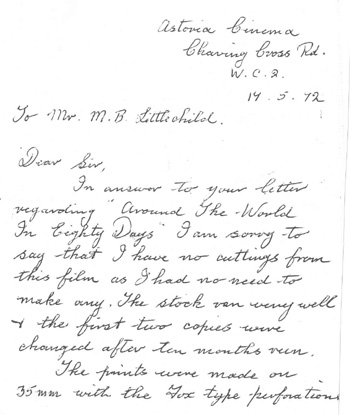 Astoria Cinema
Charing Cross Rd.
W.C.2.
14.5.72
To Mr. M.B. Littlechild.
Dear Sir,
In answer to your letter
regarding "Around The World
In Eighty Days" I am sorry to
say that I have no cuttings from
this film as I had no need to
make any. The stock ran very well
& the first two copies were
changed after ten months run.
The prints were made on
35mm with the Fox type perforations